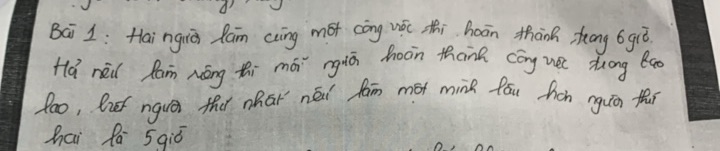 Bài 1: Hai người làm cùng một công việc thì hoàn thành trong 6 giờ.
Hỏi nếu làm riêng thì mỗi người hoàn thành công việc trong bao
lao, biết người thứ nhất nếu làm một mình lâu hơn người thứ
hai là 5 giờ